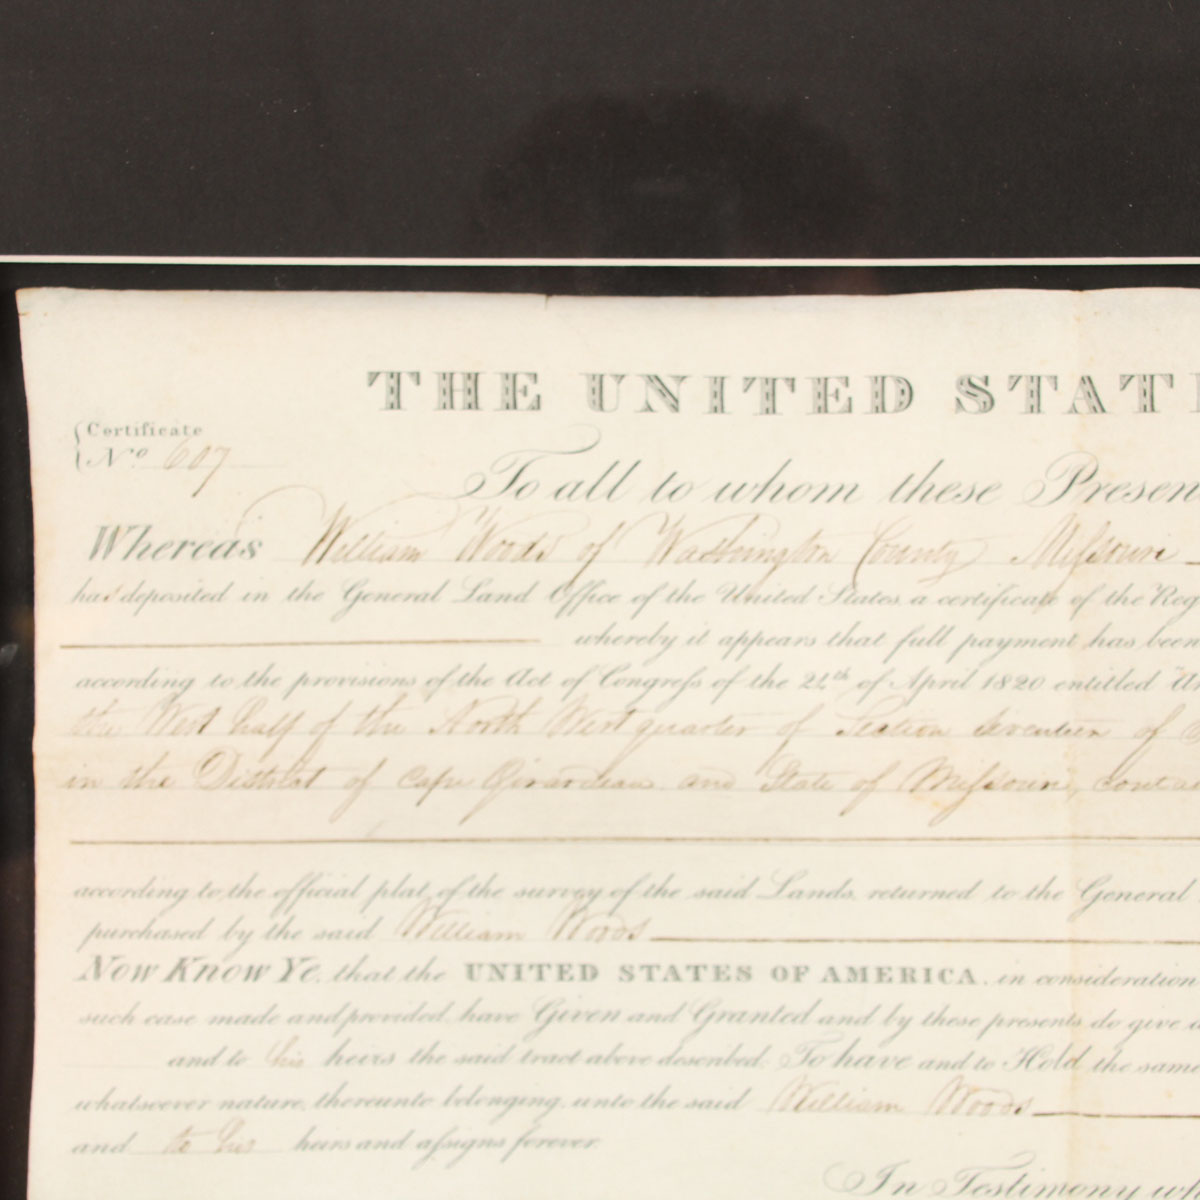 THE UNITED STAT
Certificate
No. 607
To all to whom these Presen
Whereas William Woods of Washington County Missouri
has deposited in the General Land Office of the United States, a certificate of the Reg
whereby it appears that full payment has been
according to the provisions of the Act of Congress of the 24th of April 1820 entitled "An
the West half of the North West quarter of Section seventeen of
in the District of Cape Girardeau and State of Missouri, conta
according to the official plat of the survey of the said Lands, returned to the General
purchased by the said William Woods
Now Know Ye, that the UNITED STATES OF AMERICA, in consideration
such case made and provided, have Given and Granted and by these presents do give
and to his heirs the said tract above described: To have and to Hold the same
whatsoever nature, thereunto belonging, unto the said William Woods
and to his heirs and assigns forever
In Testimony wh